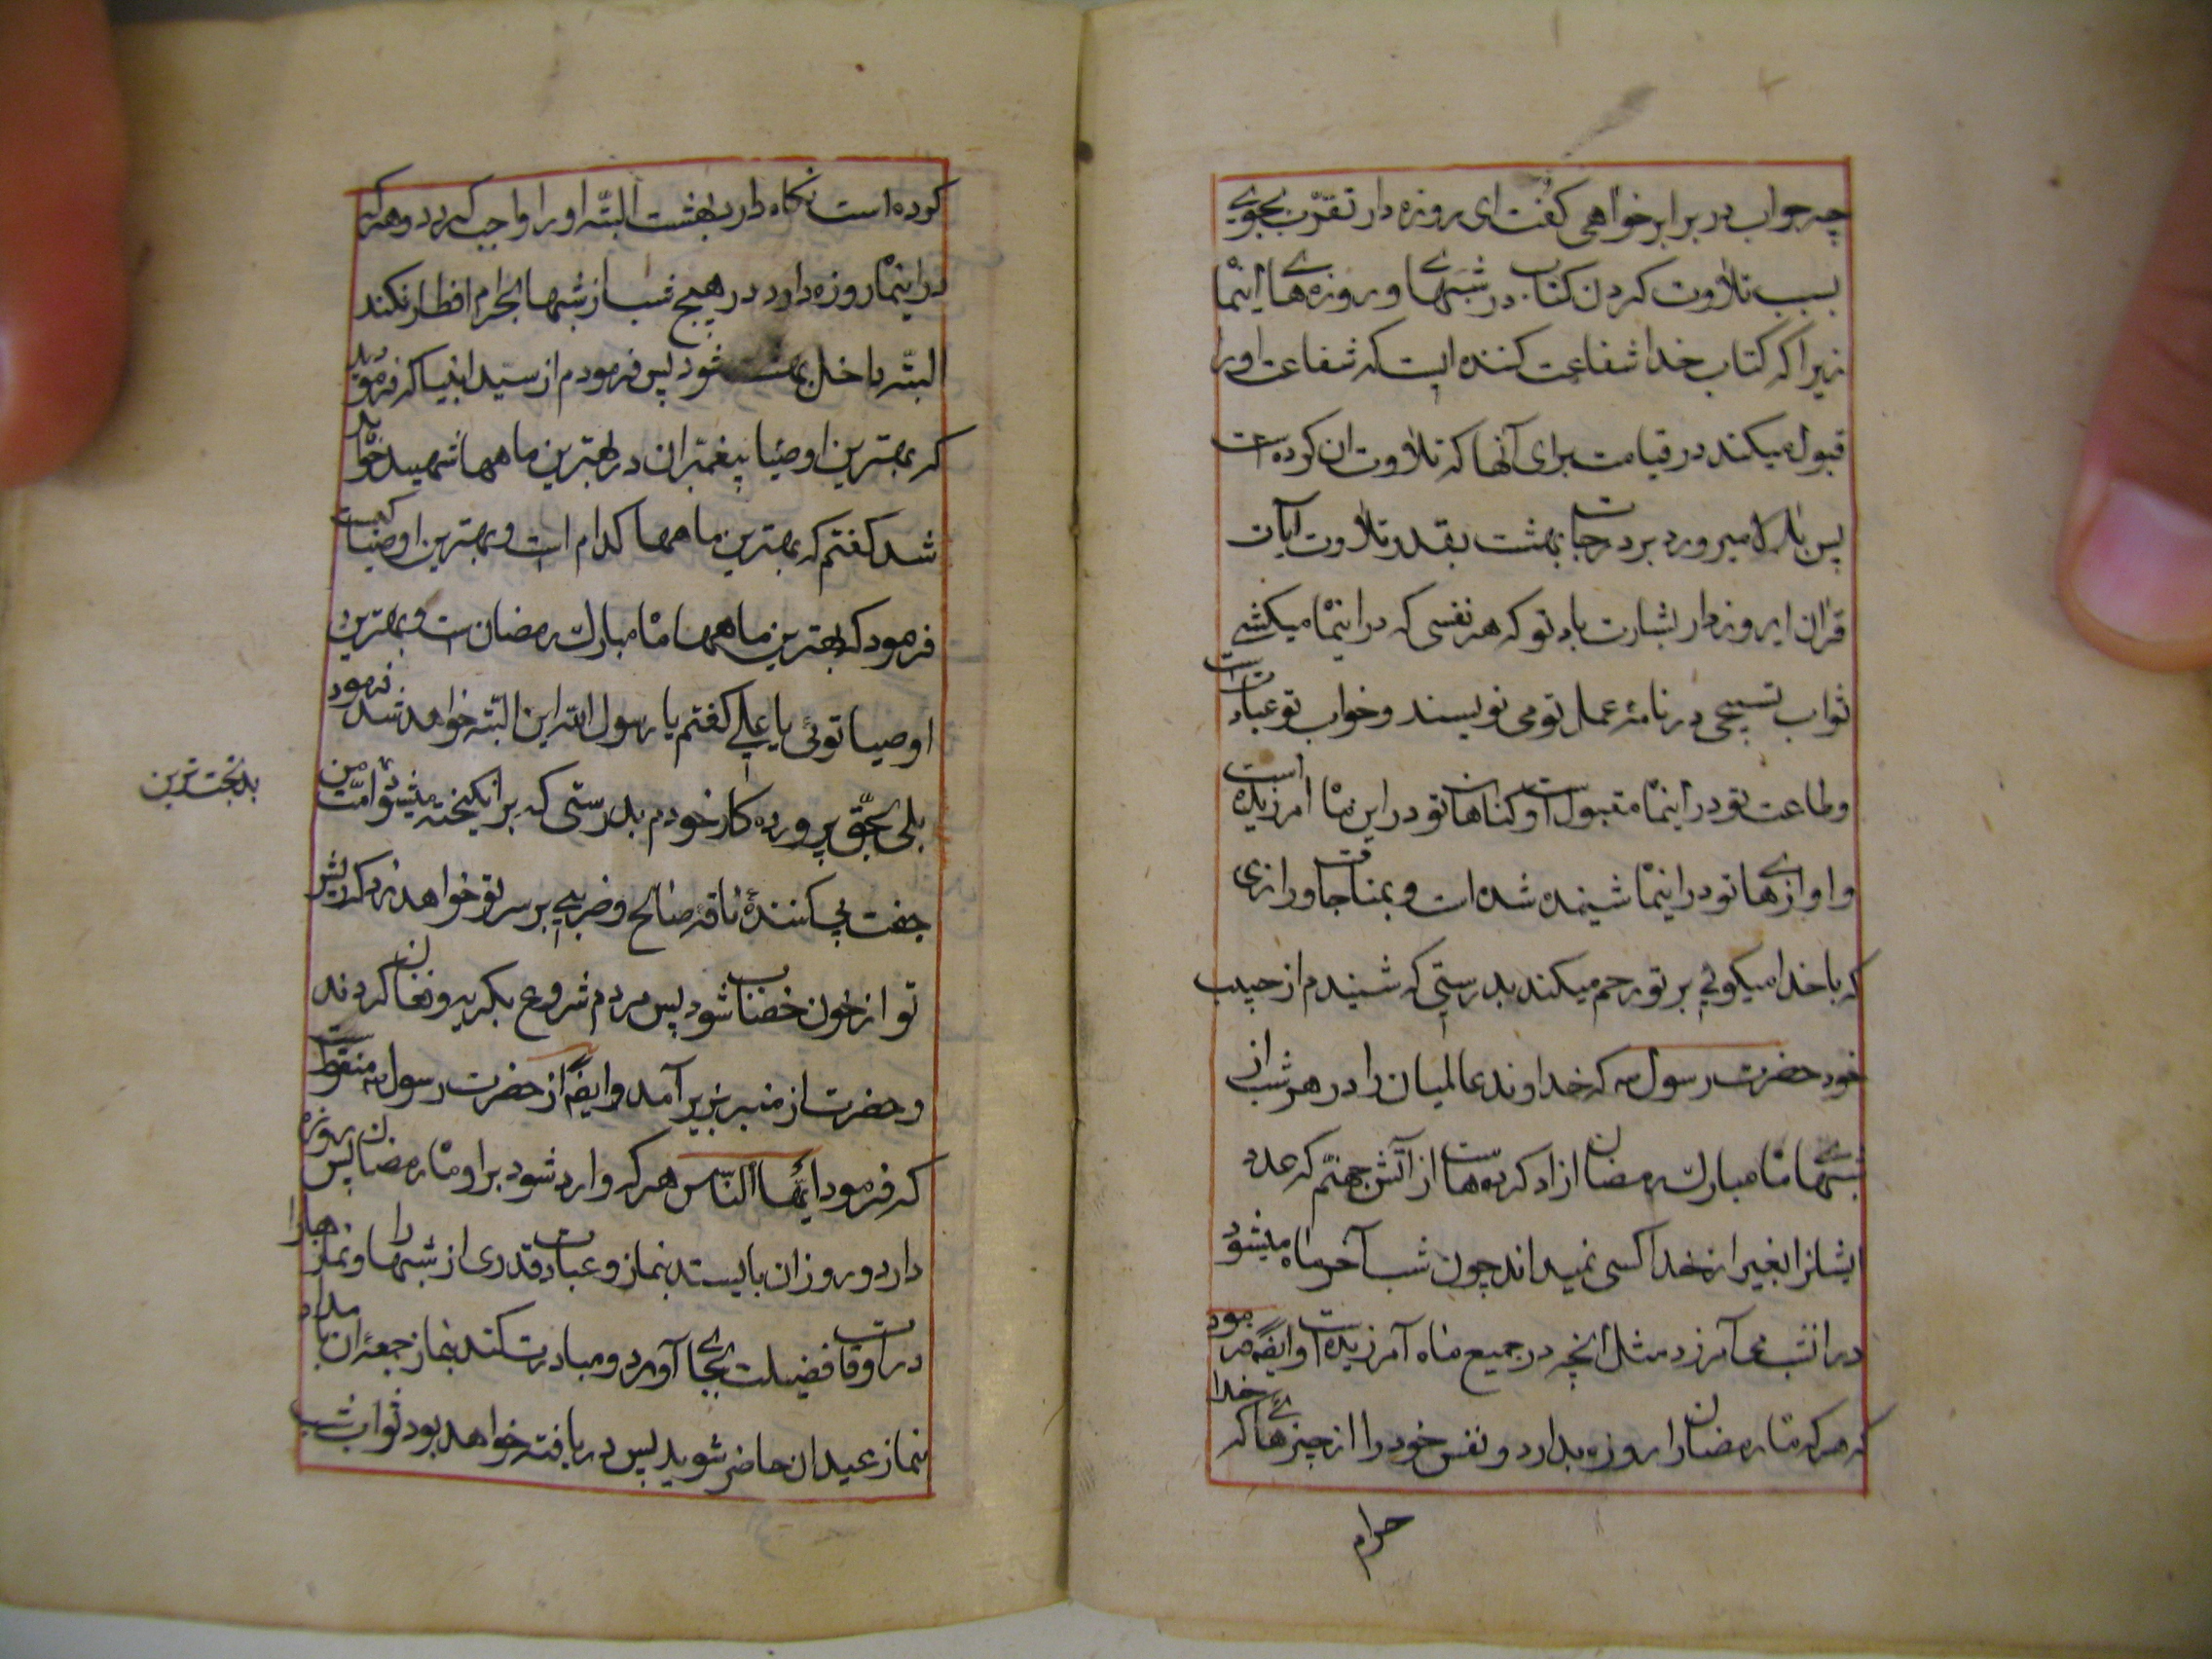 چه جواب در برابر خواهی کفت ای روزه دار تقرّب بجوی
بسبب تلاوت کردن کتاب در شبهای و روزهای اینما
زیرا که کتاب خدا شفاعت کننده ایست که شفاعت اورا
قبول میکند در قیامت برای آنها که تلاوت ان کرده است
پس بالا میرود بر درجات بهشت بقدر تلاوت آیات
قران ایروزدار بشارت باد تو که هر نفسی که در اینما میکشی
ثواب تسبیحی در نامهٔ عمل تو می نویسند و خواب تو عبادت است
وطاعت تو در اینما مقبولست و کناهان تو در این ما امرزیده است
و اوازهای تو در اینما شنیده شده است و بمناجات و رازی
که با خدا میکوئی بر تو رحم میکند بدرستی که شنیدم از حبیب
خود حضرت رسول که خداوند عالمیان را در هر شب از
شبهای ما مبارک رمضان ازاد کرده هاست از آتش جهنّم که عدد
ایشانرا بغیر از خدا کسی نمیداند چون شب آخر ماه میشود
در انشب می آمرزد مثل آنچه در جمیع ماه آمرزیده است وایضً فرمود
که هر که ما رمضان را روزه بدارد و نفس خود را از چیزهائی که خدا
حرام
کرده است نکاه دارد بهشت البتّه اورا واجب کردد و هر که
در اینما روزه دارد در هیچ شب از شبها بحرام افطار نکند
البتّه داخل بهشت شود پس فرمودم از سیّد انبیا که فرمود
که بهترین اوصیا پیغمبران در بهترین ماهها شهید خواهد
شد کفتم که بهترین ماهها کدام است و بهترین اوصیا کیست
فرمود که بهترین ماهها ما مبارک رمضان ست و بهترین
اوصیا توئی یا علی کفتم یا رسول الله این البتّه خواهد شد فرمود
بلی بحقّ پروردهکار خودم بدرستی که برانکیخته میشود امّت من
بدبخت ترین
جفت پی کنندهٔ ناقه صالح و ضربی بر سر تو خواهد زد که ریش
تو از خون خضاب شود پس مردم شروع بکریه و فغان کردند
و حضرت از منبر بزیر آمد وایضً از حضرت رسول منقولست
که فرمود ایّها النّاس هر که وارد شود بر او ما رمضان پس روزه
دارد و روز ان بایستد بنماز و عبادت قدری از شبها را و نمازهارا
در اوقات فضیلت بجای آورد و مبادرت کند بنماز جمعهٔ ان بامداد
نماز عید ان حاضر شوید پس دریافته خواهد بود ثواب شب